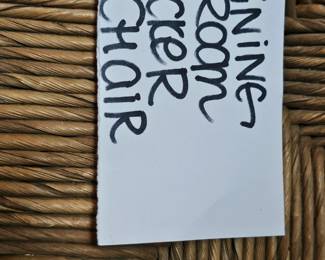 NINE
ROOM
CKER
CHAIR